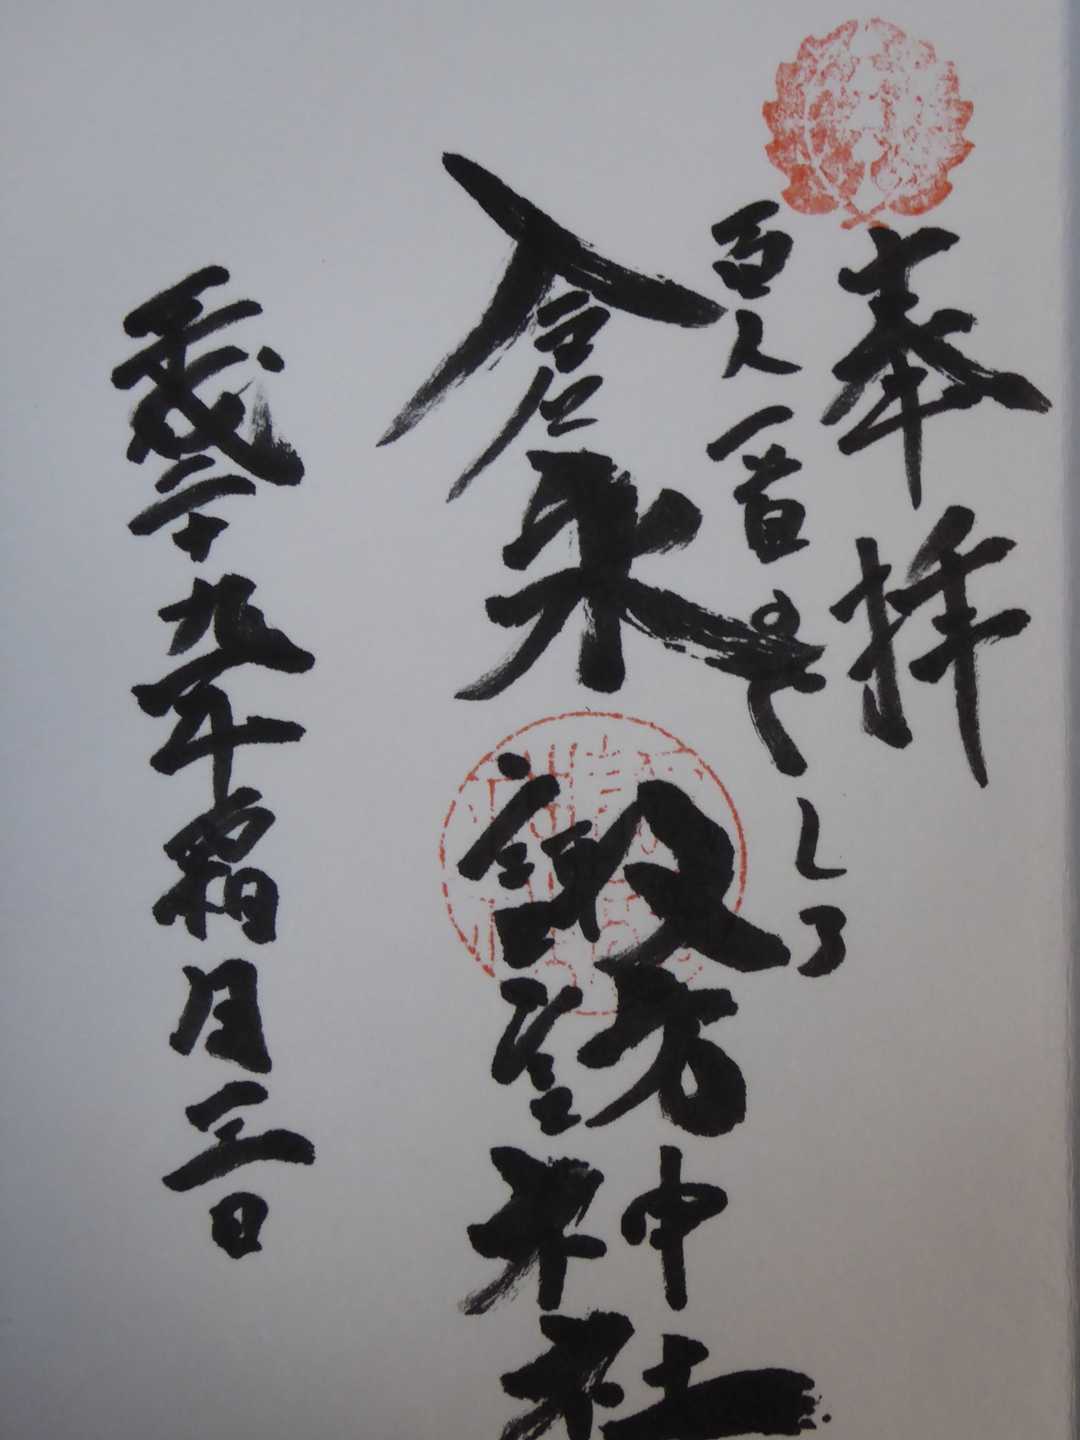 奉拝
百人一首のやしろ
倉永諏訪神社
平成二十九年霜月三日